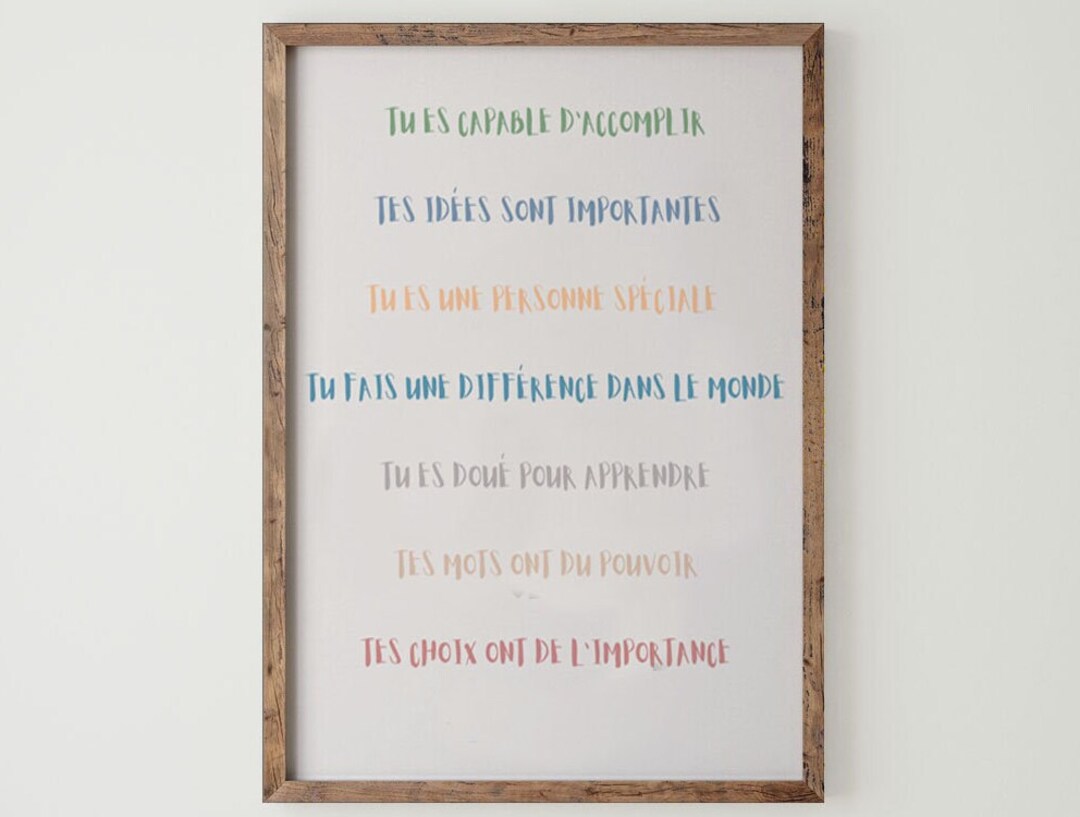 TU ES CAPABLE D'ACCOMPLIR
TES IDÉES SONT IMPORTANTES
TU ES UNE PERSONNE SPÉCIALE
TU FAIS UNE DIFFÉRENCE DANS LE MONDE
TU ES DOUÉ POUR APPRENDRE
TES MOTS ONT DU POUVOIR
TES CHOIX ONT DE L'IMPORTANCE